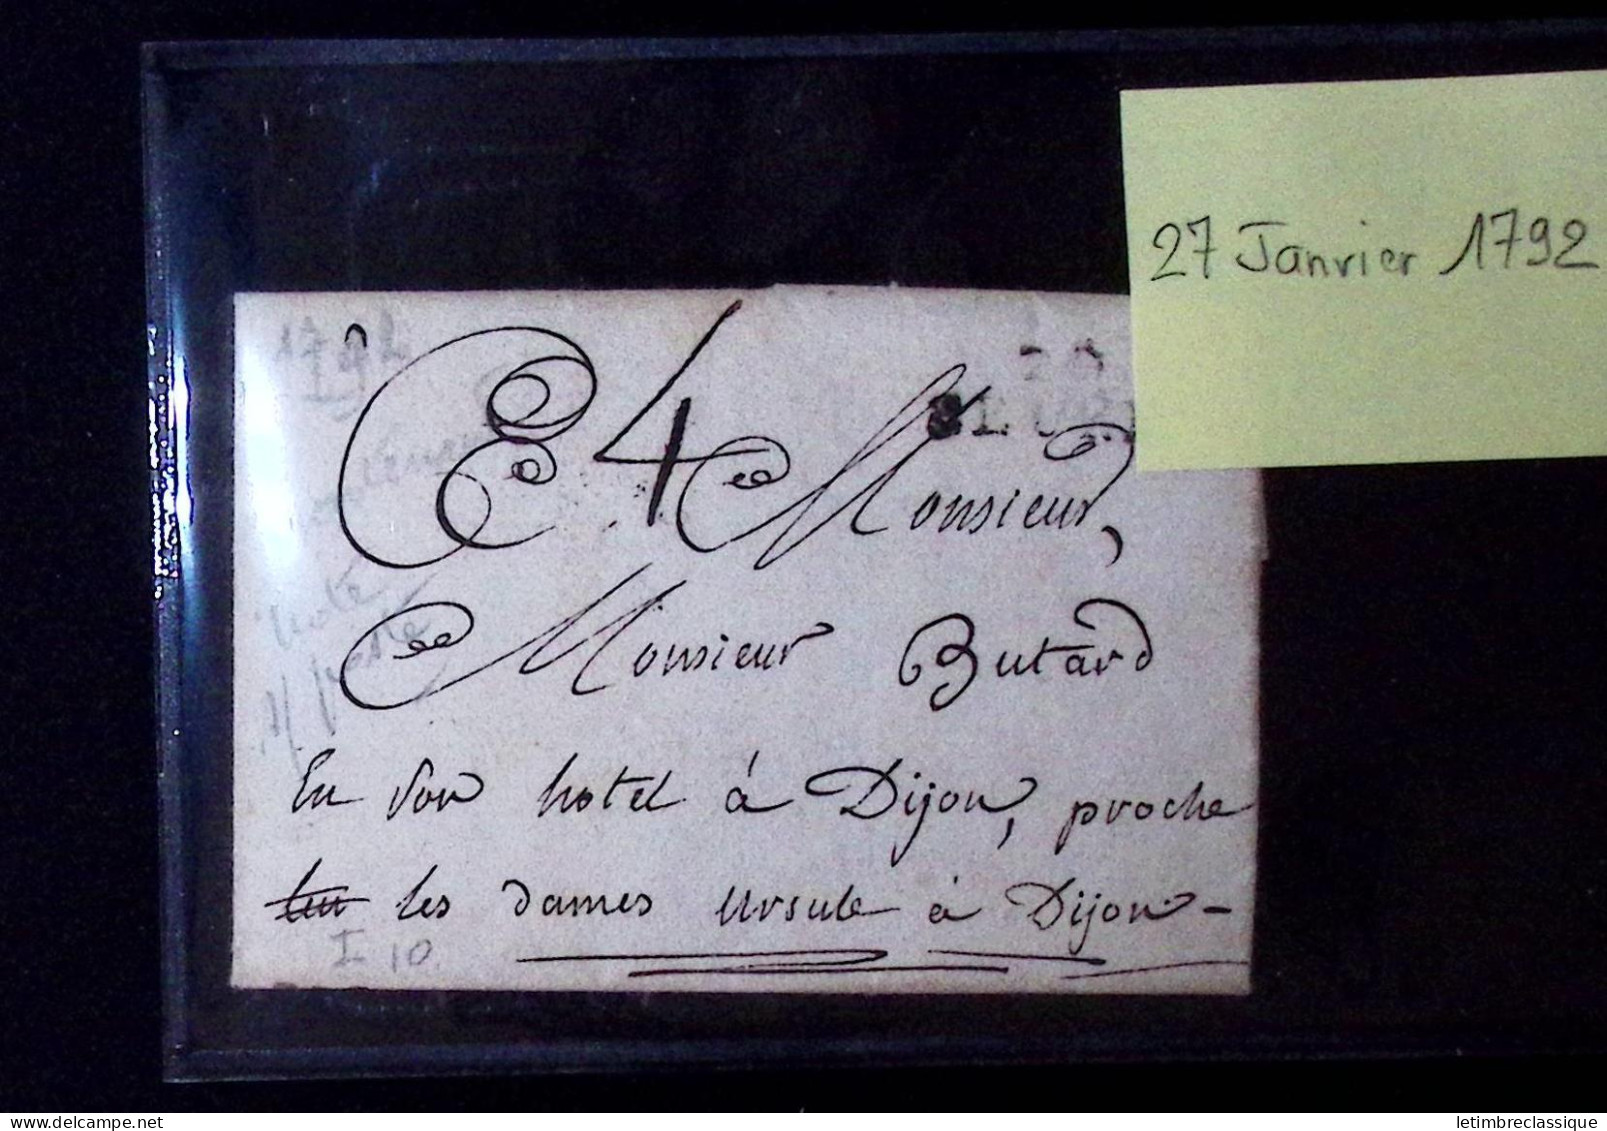 27 Janvier 1792
1792
4 Monsieur,
Monsieur Butard
En Son hotel à Dijon, proche
les dames Ursule à Dijon -
I 10.
delcampe.net
letimbreclassique